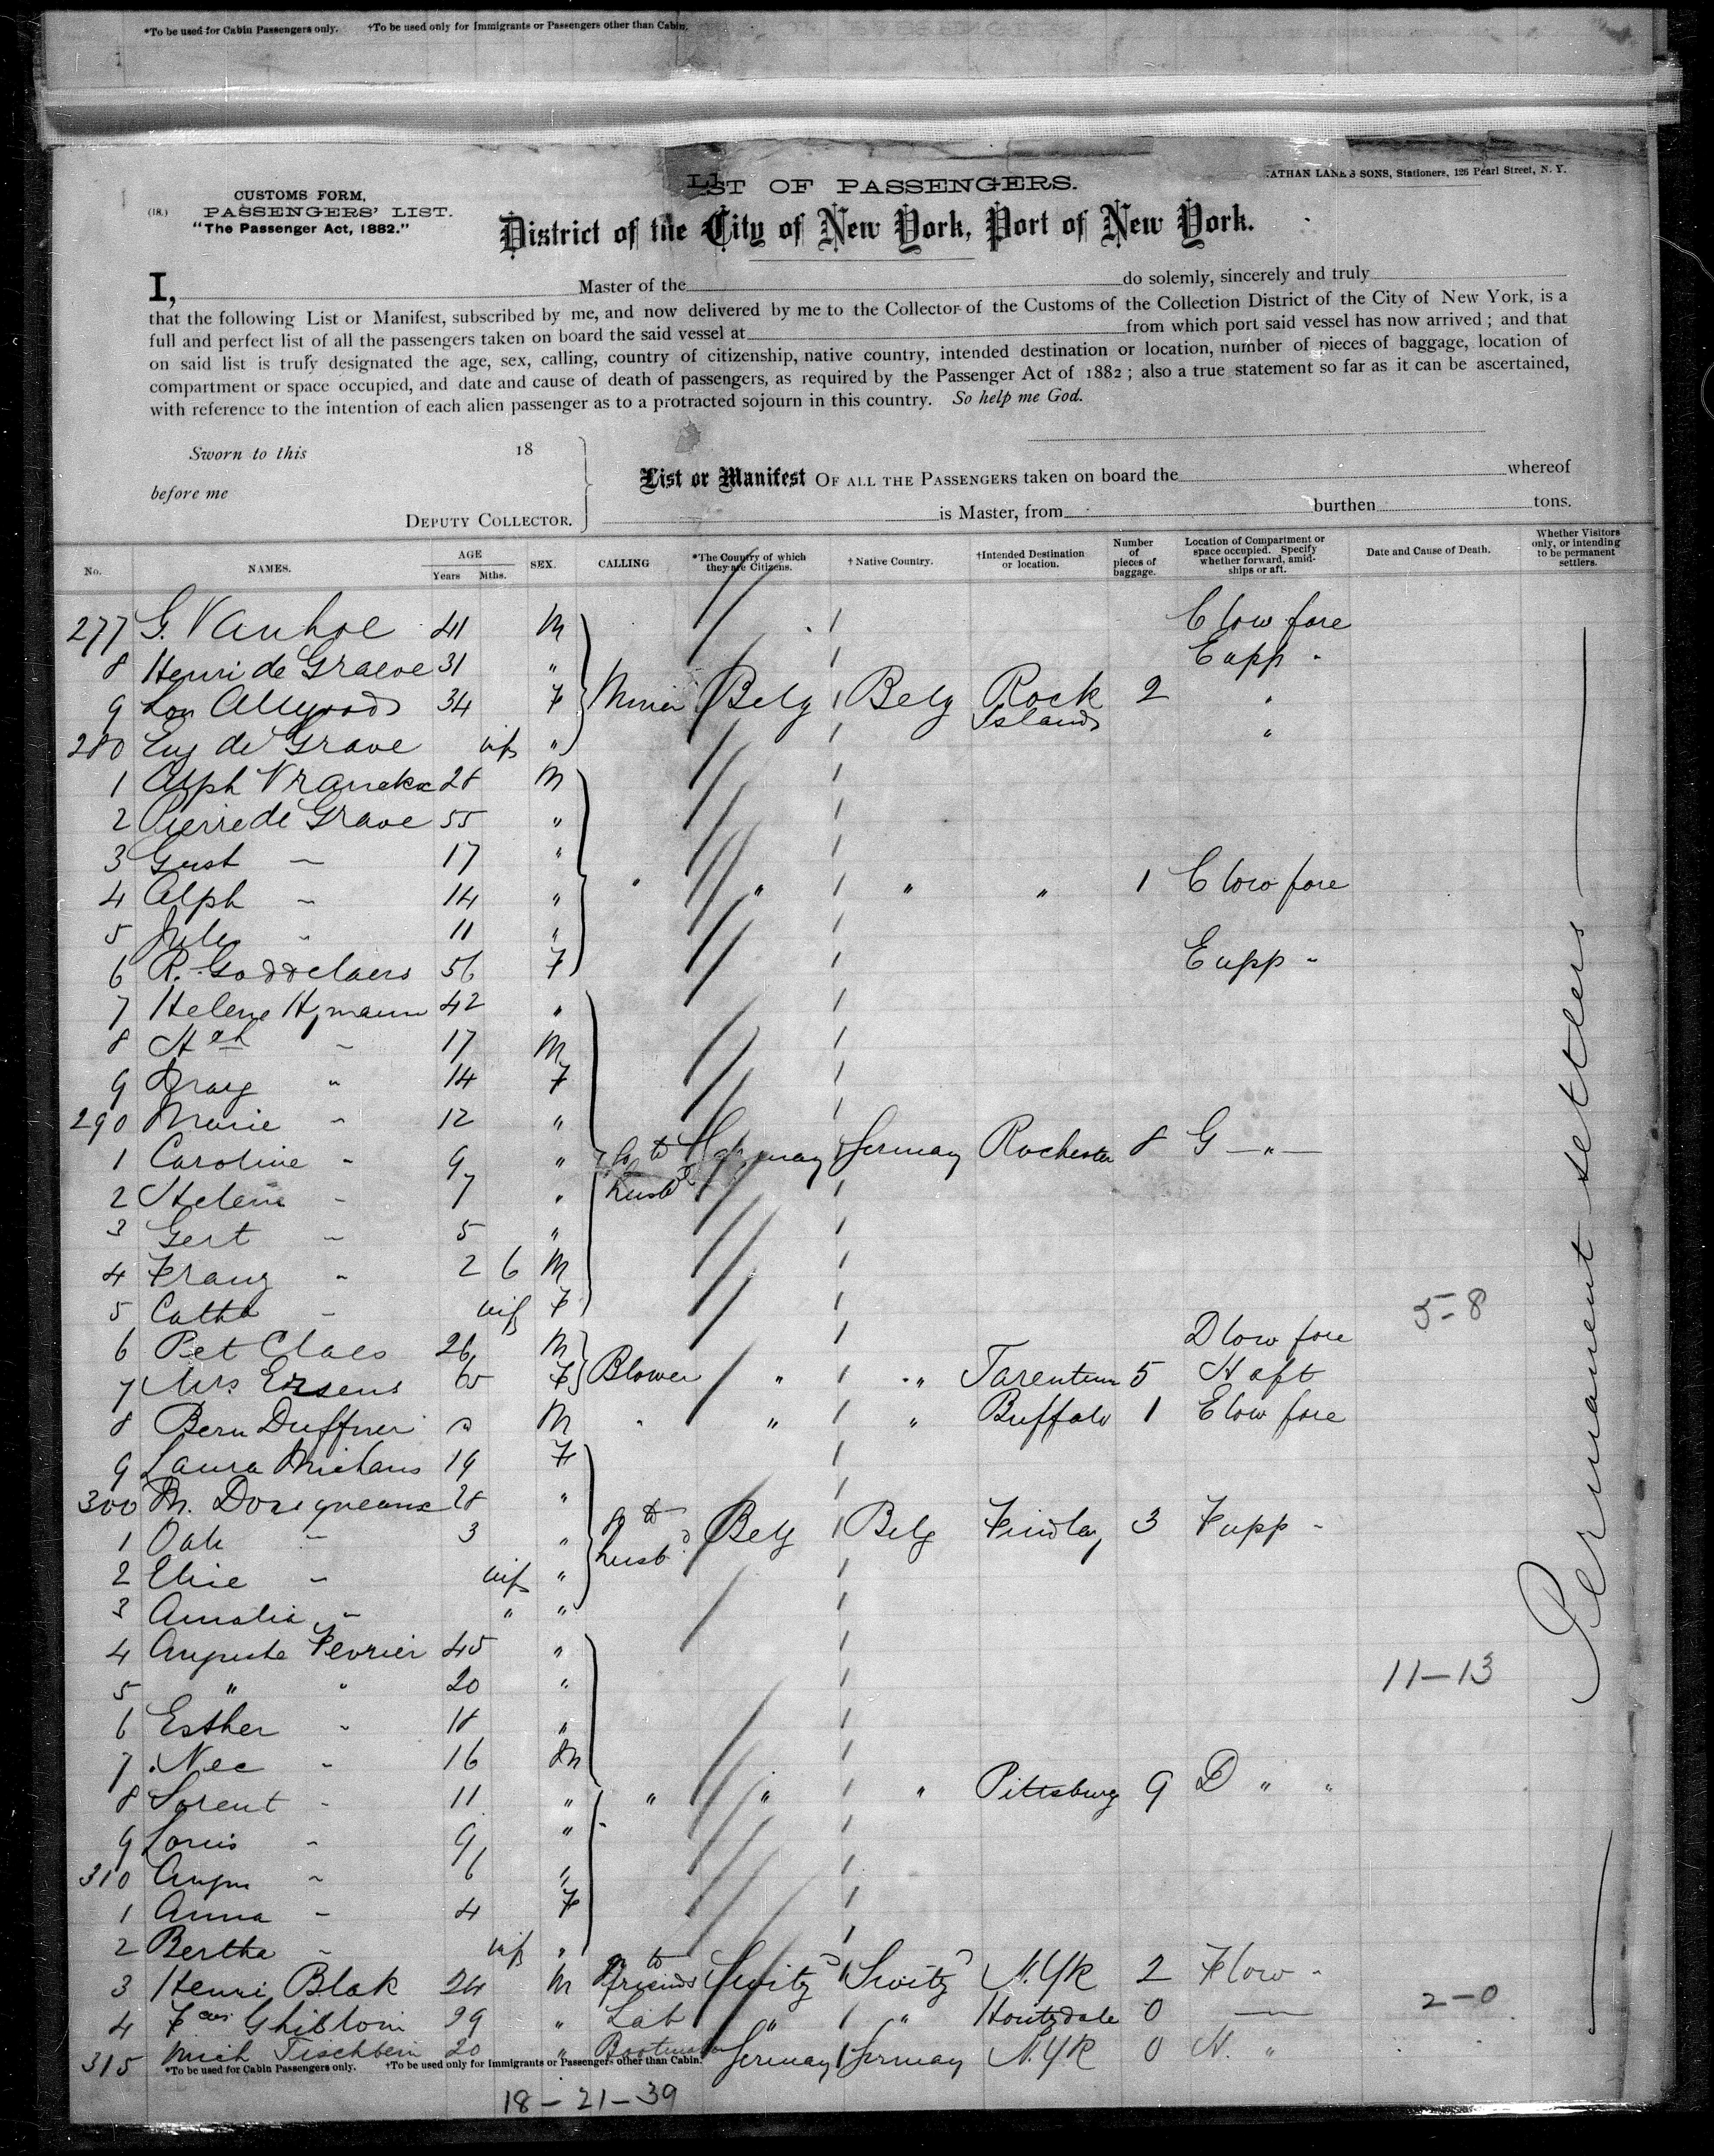 *To be used for Cabin Passengers only. †To be used only for Immigrants or Passengers other than Cabin.
CUSTOMS FORM,
(18.) PASSENGERS' LIST.
"The Passenger Act, 1882."
LIST OF PASSENGERS.
ATHAN LANE & SONS, Stationers, 126 Pearl Street, N. Y.
District of the City of New York, Port of New York.
I, Master of the do solemly, sincerely and truly
that the following List or Manifest, subscribed by me, and now delivered by me to the Collector of the Customs of the Collection District of the City of New York, is a
full and perfect list of all the passengers taken on board the said vessel at from which port said vessel has now arrived ; and that
on said list is truly designated the age, sex, calling, country of citizenship, native country, intended destination or location, number of pieces of baggage, location of
compartment or space occupied, and date and cause of death of passengers, as required by the Passenger Act of 1882 ; also a true statement so far as it can be ascertained,
with reference to the intention of each alien passenger as to a protracted sojourn in this country. So help me God.
Sworn to this 18
before me
DEPUTY COLLECTOR.
List or Manifest OF ALL THE PASSENGERS taken on board the whereof
is Master, from burthen tons.
No. NAMES. AGE Years Mths. SEX. CALLING *The Country of which they are Citizens. † Native Country. †Intended Destination or location. Number of pieces of baggage. Location of Compartment or space occupied. Specify whether forward, amidships or aft. Date and Cause of Death. Whether Visitors only, or intending to be permanent settlers.
277 G. Vanhoe 41 M C low fore
8 Henri de Graeve 31 " E upp "
9 34 F Miner Belg Belg Rock Island 2 "
280 Eug de Grave inf " "
1 Alph Vranckx 28 M
2 Pierre de Grave 55 "
3 Gust " 17 "
4 Alph " 14 " " " " " 1 C low fore
5 Jules " 11 "
6 R. Goddelaers 56 F E upp "
7 Helene Hymann 42 "
8 " 17 M
9 " 14 F
290 Marie " 12 "
1 Caroline " 9 " to husbd Germany Germany Rochester 8 G "
2 Helene " 7 "
3 Gert " 5 "
4 Franz " 2 6 M
5 Catha " inf F 5-8
6 Pet Claes 26 M D low fore
7 Mrs Ersens F Blower " " Tarentum 5 H aft
8 Bern Duffner M " " " Buffalo 1 E low fore
9 Laura Michaus 19 F
300 M. 28 "
1 " 3 " to husbd Belg Belg Findlay 3 F upp "
2 Elise " inf "
3 Amalia " " "
4 Auguste Fevrier 45 "
5 " " 20 " 11-13
6 Esther " 18 "
7 Nee " 16 M
8 Lorent " 11 " " " " Pittsburg 9 D " "
9 Louis " 9 "
310 " 6 "
1 Anna " 4 F
2 Bertha " inf "
3 Henri Blok 24 M to friends Switzd Switzd N. Yk 2 F low "
4 Ghisloni 29 " Lab " " Houtzdale 0 2-0
315 Mich Tischbein 20 " Germany Germany N. Yk 0 H. "
Permanent settlers
*To be used for Cabin Passengers only. †To be used only for Immigrants or Passengers other than Cabin.
18-21-39